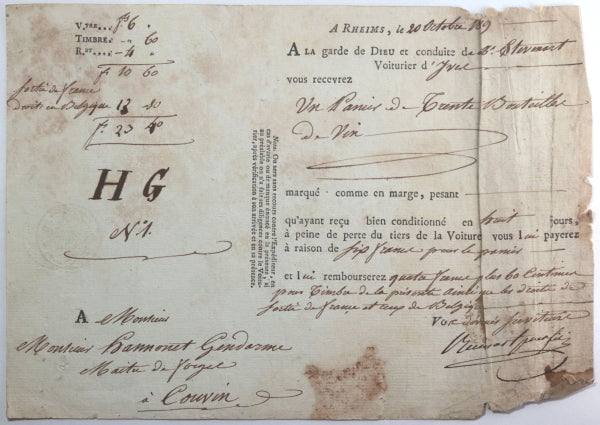 A RHEIMS, le 20 Octobre
A LA garde de DIEU et conduite de
Voiturier d'
vous recevrez
Un Panier de Trente Bouteilles
de Vin
marqué comme en marge, pesant
qu'ayant reçu bien conditionné en huit jours,
à peine de perte du tiers de la Voiture vous lui payerez
à raison de six francs pour le panier
et lui rembourserez quatre francs & les 60 Centimes
pour Timbre de la présente ainsi que les droits de
Sortie de france et ceux de Belgique
Vos dévoués Serviteurs
V.TRE... f 6 "
TIMBRE. " 60
R.ST.... 4 "
f 10 60
Sortie de france
droits en Belgique 12 80
f. 23 40
H G
N.º 1.
Nota. On sera sans recours contre l'Expéditeur, en
cas d'avarie ou de manque énoncé en la présente, si
au préalable on n'a fait ses diligences contre le Voitu-
rier, après vérification à son arrivée et en sa présence.
A Monsieur
Monsieur hannonet Gendarme
Maitre de forges
à Couvin